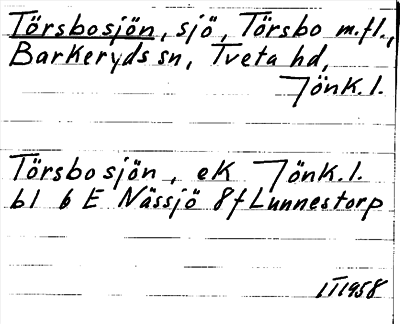 Törsbosjön, sjö, Törsbo m.fl.,
Barkeryds sn, Tveta hd,
Jönk. l.
Törsbosjön, ek Jönk. l.
bl 6 E Nässjö 8f Lunnestorp
1 II 1958